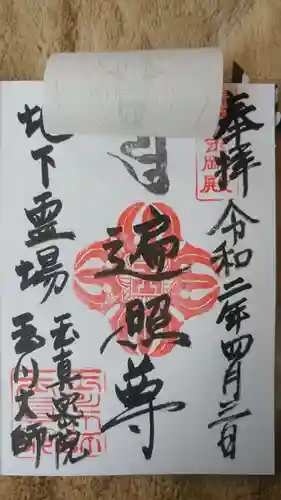 奉拝
令和二年四月三日
遍照尊
霊場
玉真密院
玉川大師